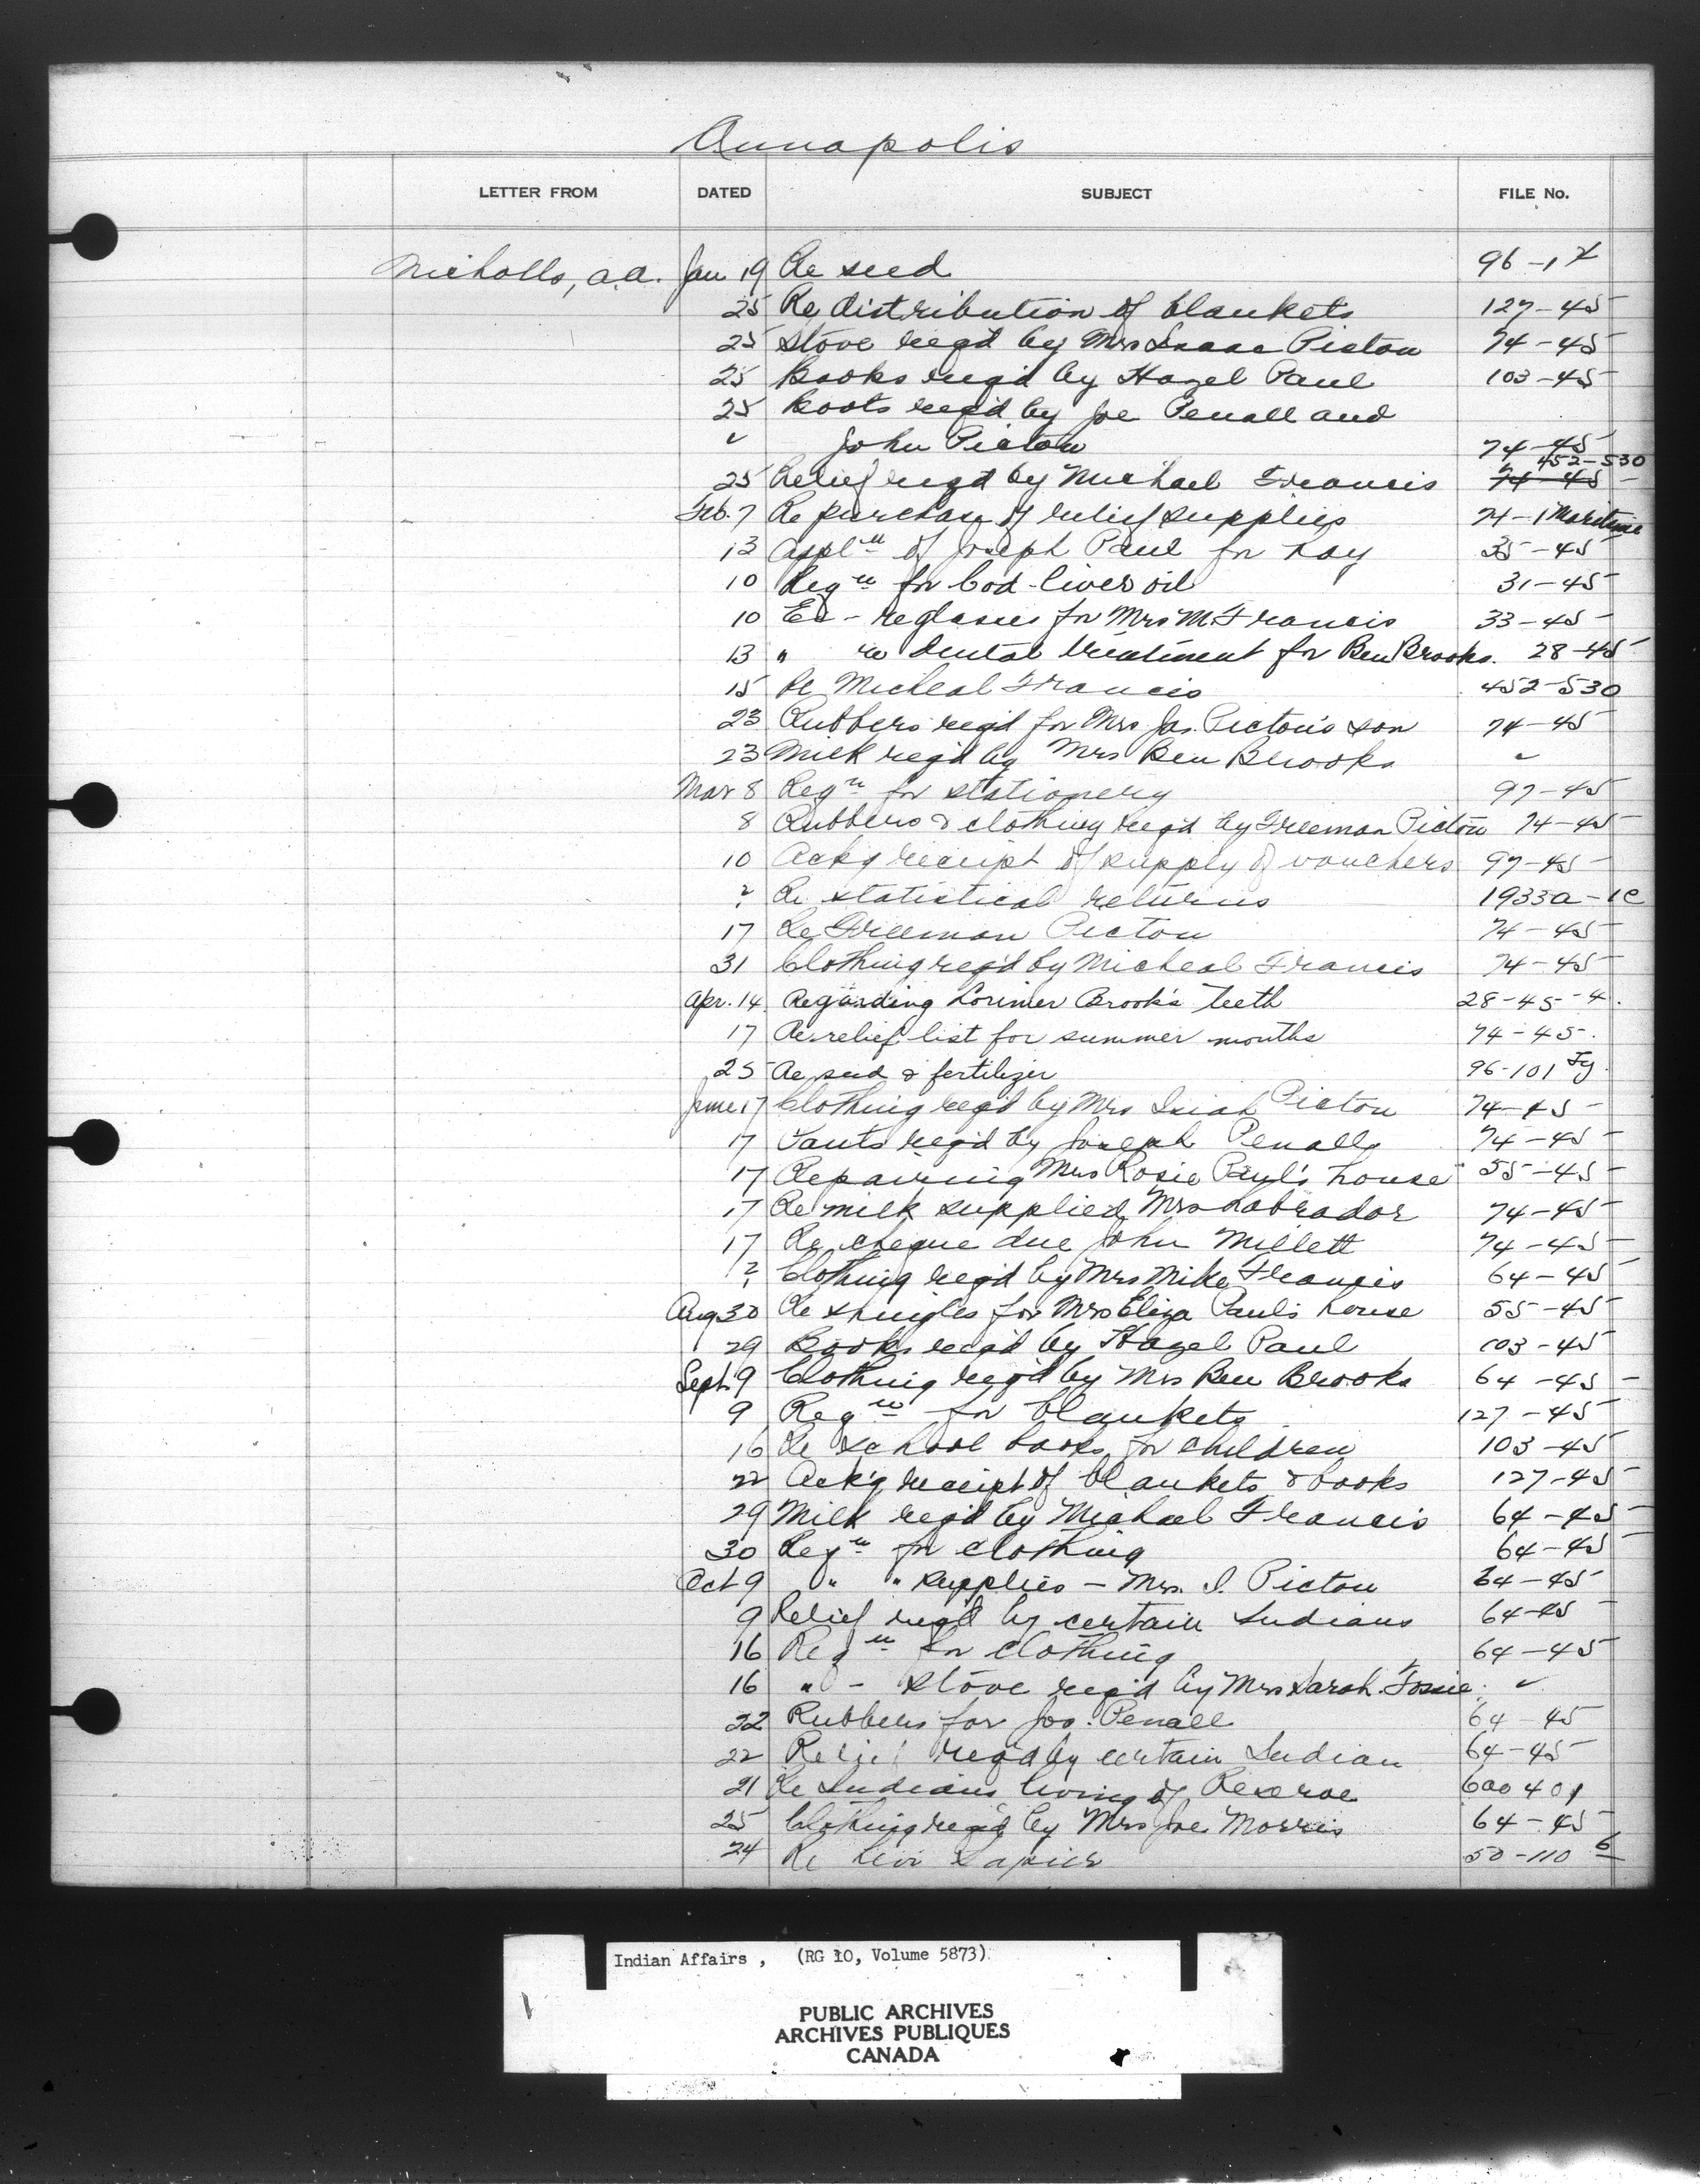 Annapolis
LETTER FROM DATED SUBJECT FILE No.
Nicholls, A.A. Jan 19 Re seed 96-1
25 Re distribution of blankets 127-45
25 Stove req'd by Mrs Isaac Picton 74-45
25 Books req'd by Hazel Paul 103-45
25 Boots req'd by Joe Penall and
" John Picton 74-45
452-530
25 Relief req'd by Michael Francis 74-45
Feb. 7 Re purchase of relief supplies 74-1 Maritime
13 Appl'n of Joseph Paul for hay 35-45
10 Reqn for Cod-liver oil 31-45
10 Ex - re glasses for Mrs M. Francis 33-45
13 " re dental treatment for Ben Brooks. 28-45
15 Re Micheal Francis 452-530
23 Rubbers req'd for Mrs Jas. Picton's son 74-45
23 Milk req'd by Mrs Ben Brooks "
Mar 8 Reqn for stationery 97-45
8 Rubbers & clothing req'd by Freeman Picton 74-45
10 Ack'g receipt of supply of vouchers 97-45
? Re statistical returns 1933a-1c
17 Re Freeman Picton 74-45
31 Clothing req'd by Micheal Francis 74-45
Apr. 14 Regarding Lorimer Brook's teeth 28-45-4.
17 Re relief list for summer months 74-45.
25 Re seed & fertilizer 96-101
June 17 Clothing req'd by Mrs Isiah Picton 74-45
17 Pants req'd by Joseph Penall 74-45
17 Repairing Mrs Rosie Paul's house 55-45
17 Re milk supplied Mrs Labrador 74-45
17 Re cheque due John Millett 74-45
? Clothing req'd by Mrs Mike Francis 64-45
Aug 30 Re shingles for Mrs Eliza Paul's house 55-45
29 Books req'd by Hazel Paul 103-45
Sept. 9 Clothing req'd by Mrs Ben Brooks 64-45
9 Reqn for blankets 127-45
16 Re school books for children 103-45
22 Ack'g receipt of blankets & books 127-45
29 Milk req'd by Michael Francis 64-45
30 Reqn for clothing 64-45
Oct 9 " " supplies - Mrs. I. Picton 64-45
9 Relief req'd by certain Indians 64-45
16 Reqn for clothing 64-45
16 " - Stove req'd by Mrs Sarah "
22 Rubbers for Jos. Penall 64-45
22 Relief req'd by certain Indian 64-45
21 Re Indians living of Reserve 600401
25 Clothing req'd by Mrs Joe Morris 64-45
24 Re Levi 50-110 6
Indian Affairs, (RG 10, Volume 5873)
PUBLIC ARCHIVES
ARCHIVES PUBLIQUES
CANADA